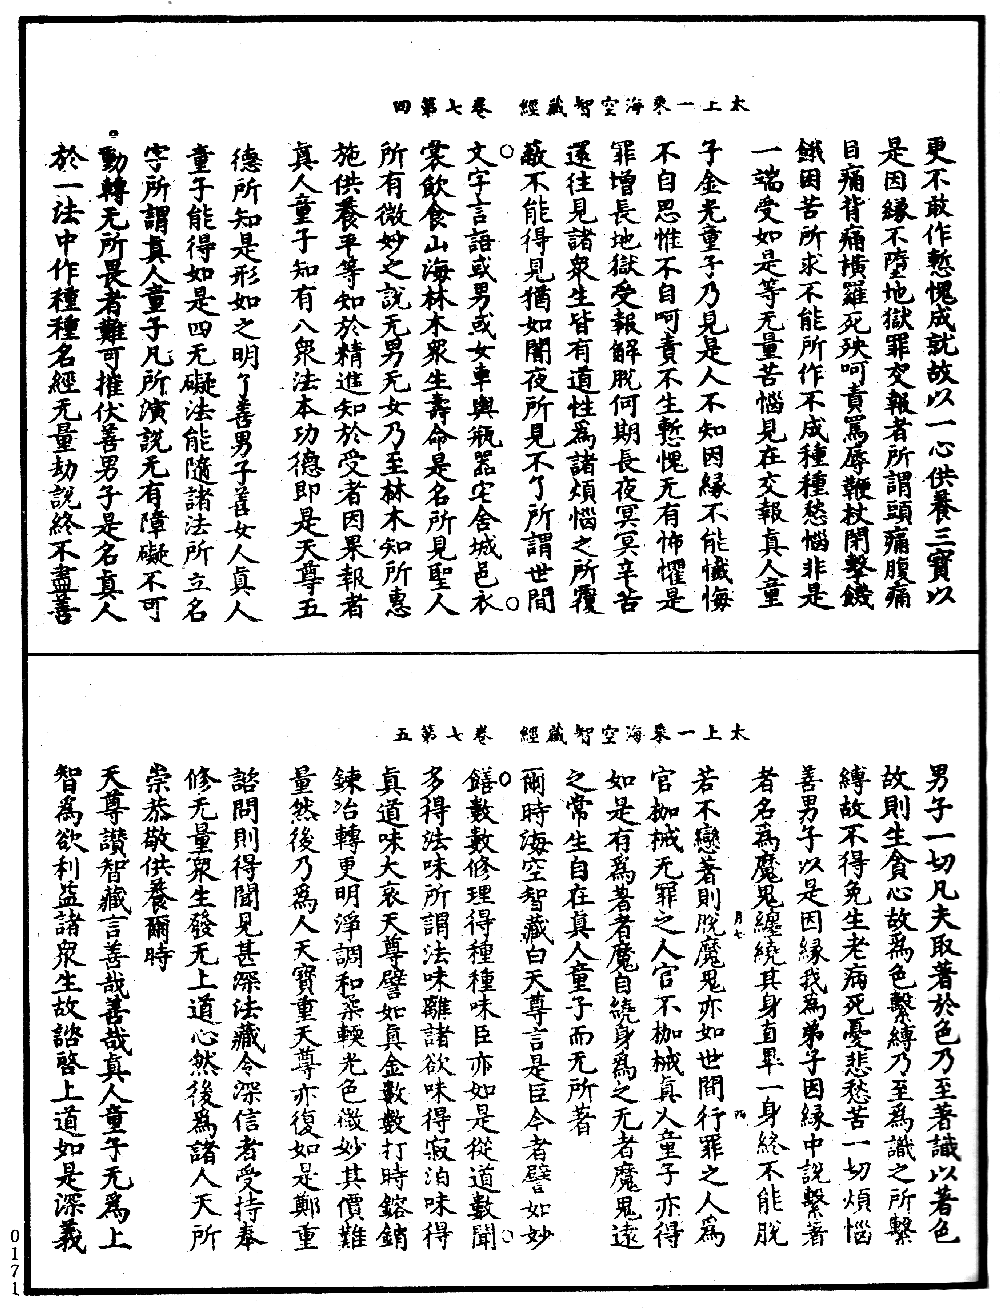 太上一乗海空智藏經　卷七第四
更不敢作慙愧成就故以一心供養三寶以
是因緣不墮地獄罪交報者所謂頭痛腹痛
目痛背痛橫羅死殃呵責罵辱鞭杖閇繫饑
餓困苦所求不能所作不成種種愁惱非是
一端受如是等无量苦惱見在交報真人童
子金光童子乃見是人不知因緣不能懺悔
不自思惟不自呵責不生慙愧无有怖懼是
罪增長地獄受報解脫何期長夜冥冥辛苦
還往見諸衆生皆有道性爲諸煩惱之所覆
蔽不能得見猶如闇夜所見不了所謂世間
文字言語或男或女車輿瓶器宅舍城邑衣
裳飲食山海林木衆生壽命是名所見聖人
所有微妙之說无男无女乃至林木知所惠
施供養平等如於精進知於受者因果報者
真人童子知有八衆法本功德即是天尊五
德所知是形如之明了善男子善女人真人
童子能得如是四无礙法能隨諸法所立名
字所謂真人童子凡所演說无有障礙不可
動轉无所畏者難可摧伏善男子是名真人
於一法中作種種名經无量劫說終不盡善
太上一乗海空智藏經　卷七第五
男子一切凡夫取著於色乃至著識以著色
故則生貪心故爲色繫縛乃至爲識之所繫
縛故不得免生老病死憂悲愁苦一切煩惱
善男子以是因緣我爲弟子因緣中說繫著
者名爲魔鬼纏繞其身直畢一身終不能脫
若不戀著則脫魔鬼亦如世間行罪之人爲
官枷械无罪之人官不枷械真人童子亦得
如是有爲著者魔自繞身爲之无者魔鬼遠
之常生自在真人童子而无所著
爾時海空智藏白天尊言是臣今者譬如妙
饍數數修理得種種味臣亦如是從道數聞
多得法味所謂法味離諸欲味得寂泊味得
真道味大哀天尊譬如真金數數打時鎔銷
鍊冶轉更明淨調和柔輭光色微妙其價難
量然後乃爲人天寶重天尊亦復如是鄭重
諮問則得聞見甚深法藏令深信者受持奉
修无量衆生發无上道心然後爲諸人天所
崇恭敬供養爾時
天尊讚智藏言善哉善哉真人童子无爲上
智爲欲利益諸衆生故諮啓上道如是深義
0171